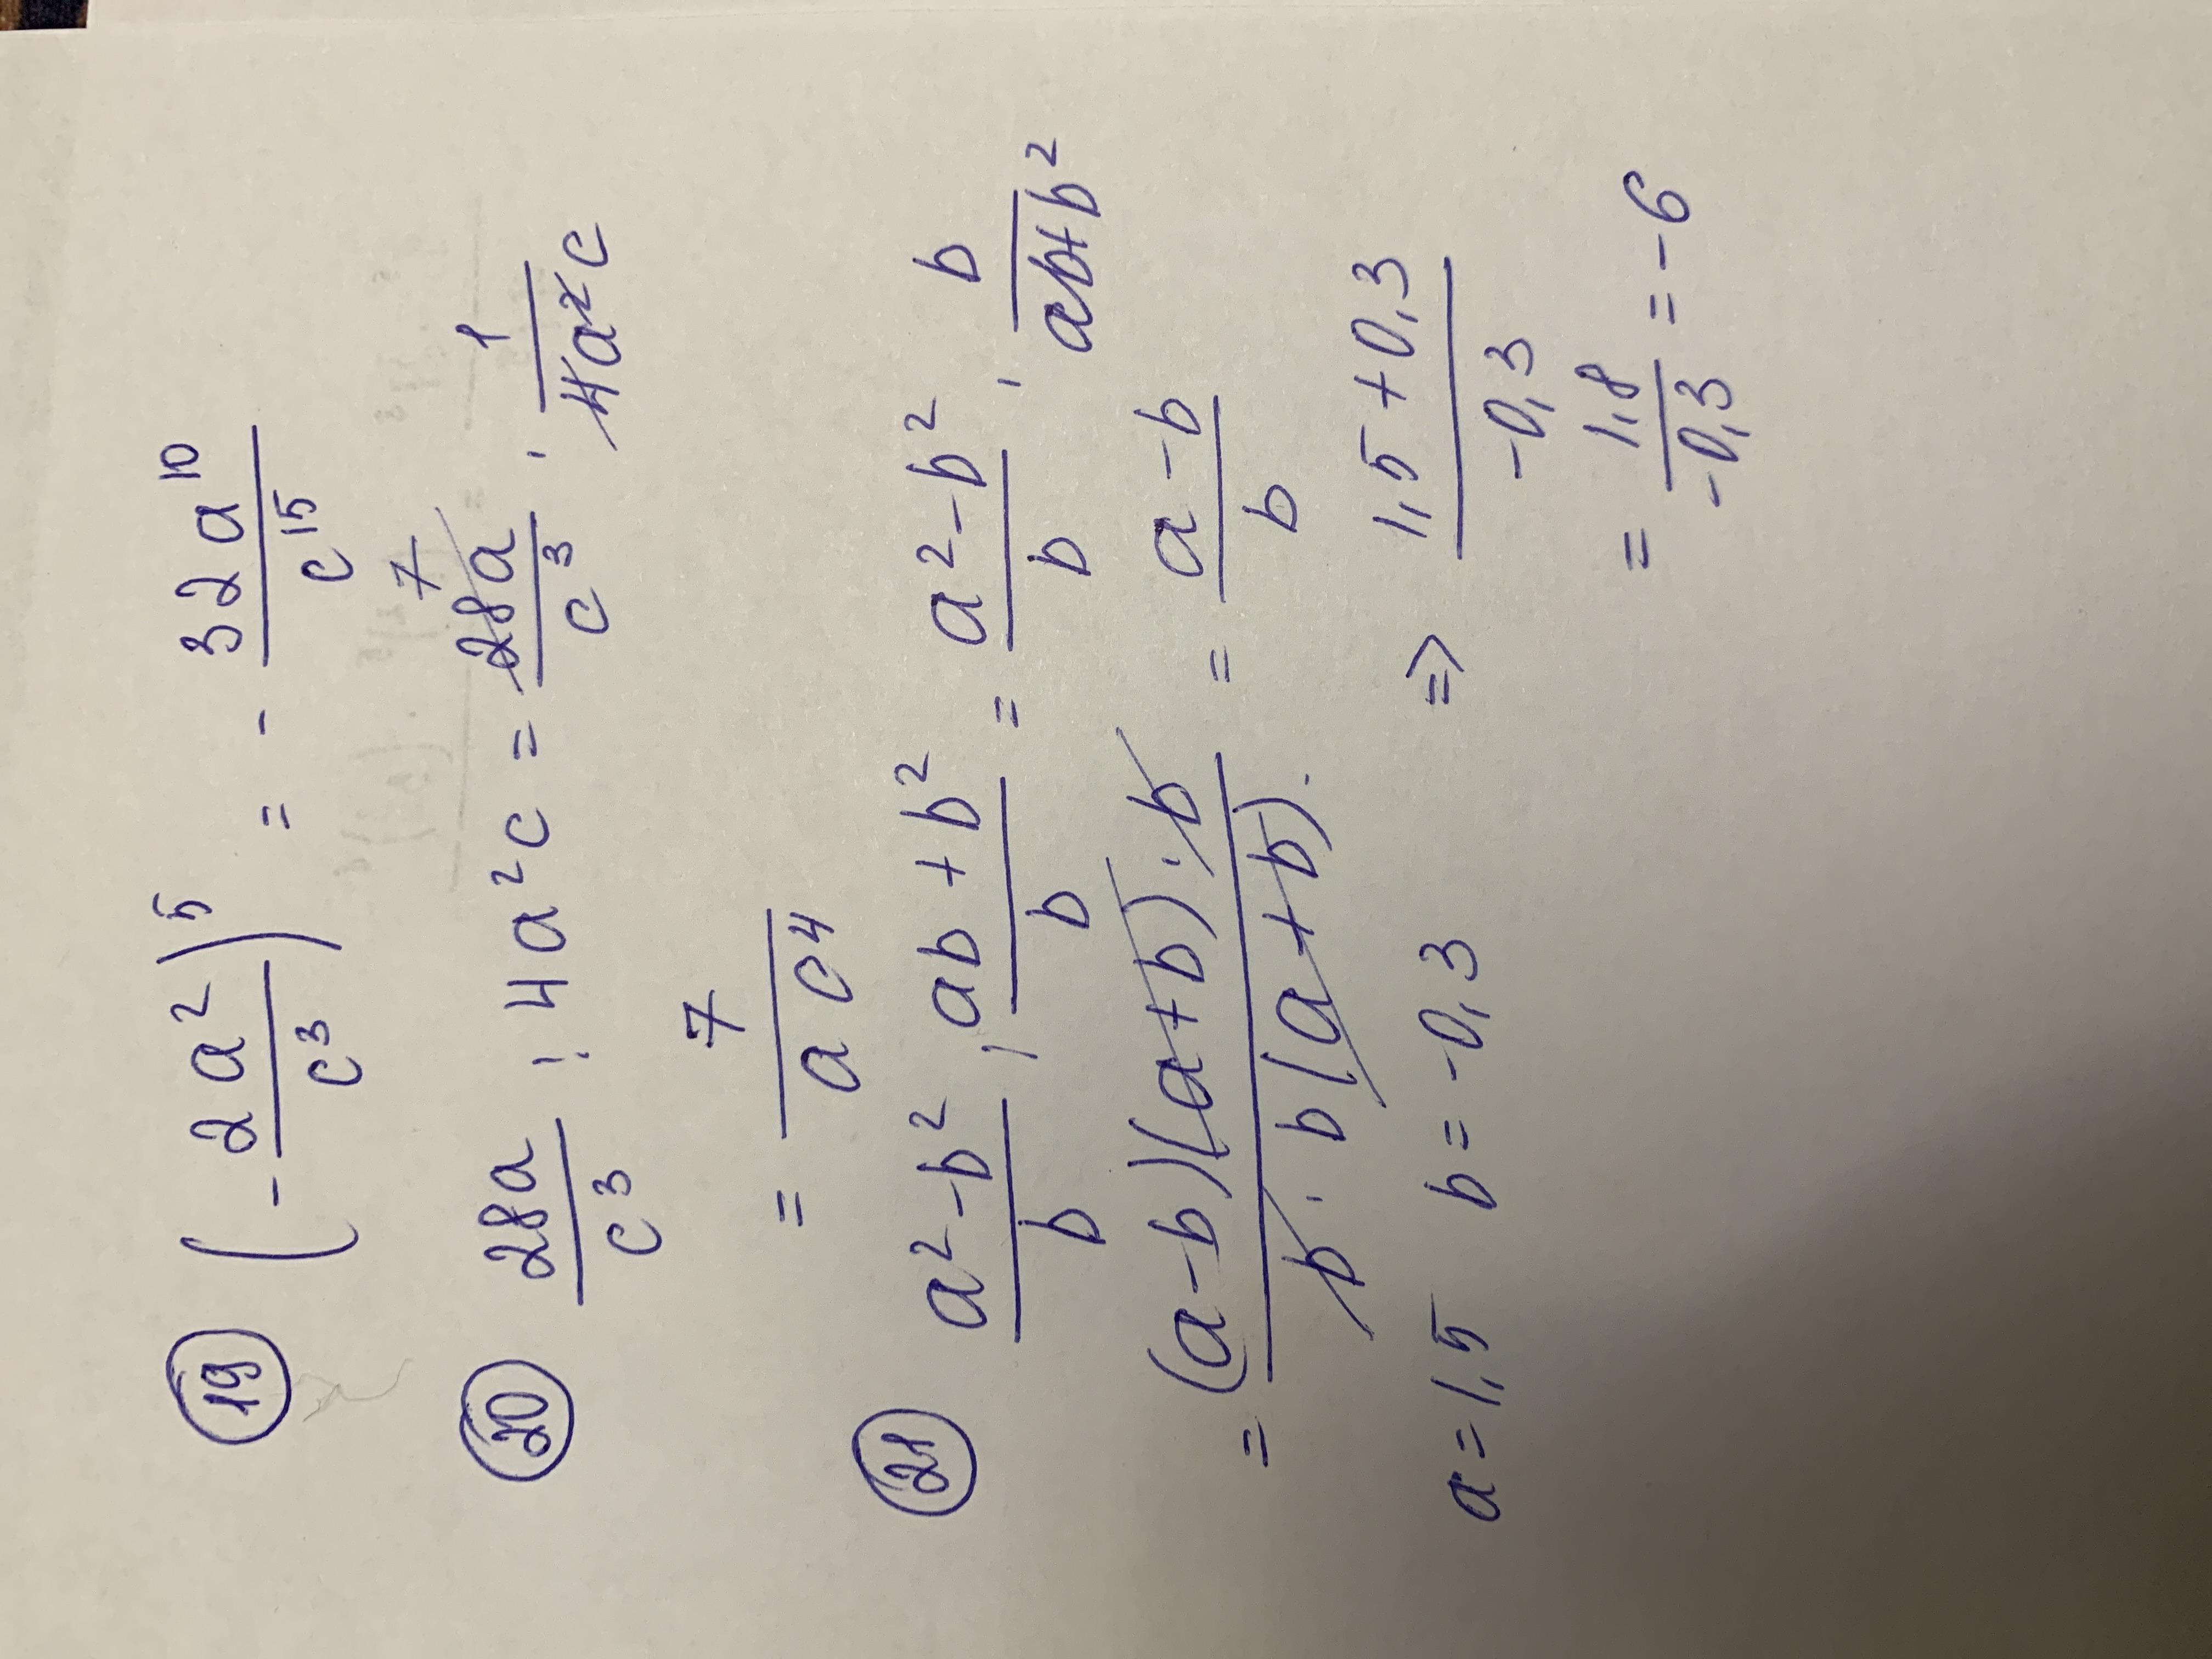 19 (-2a²/c³)⁵ = - 32a¹⁰/c¹⁵
20 28a/c³ : 4a²c = 28a/c³ · 1/4a²c 7
= 7/ac⁴
21 a²-b²/b : ab+b²/b = a²-b²/b · b/ab+b²
= (a-b)(a+b)·b/b·b(a+b). = a-b/b
a=1,5 b=-0,3 => 1,5+0,3/-0,3
= 1,8/-0,3 = -6